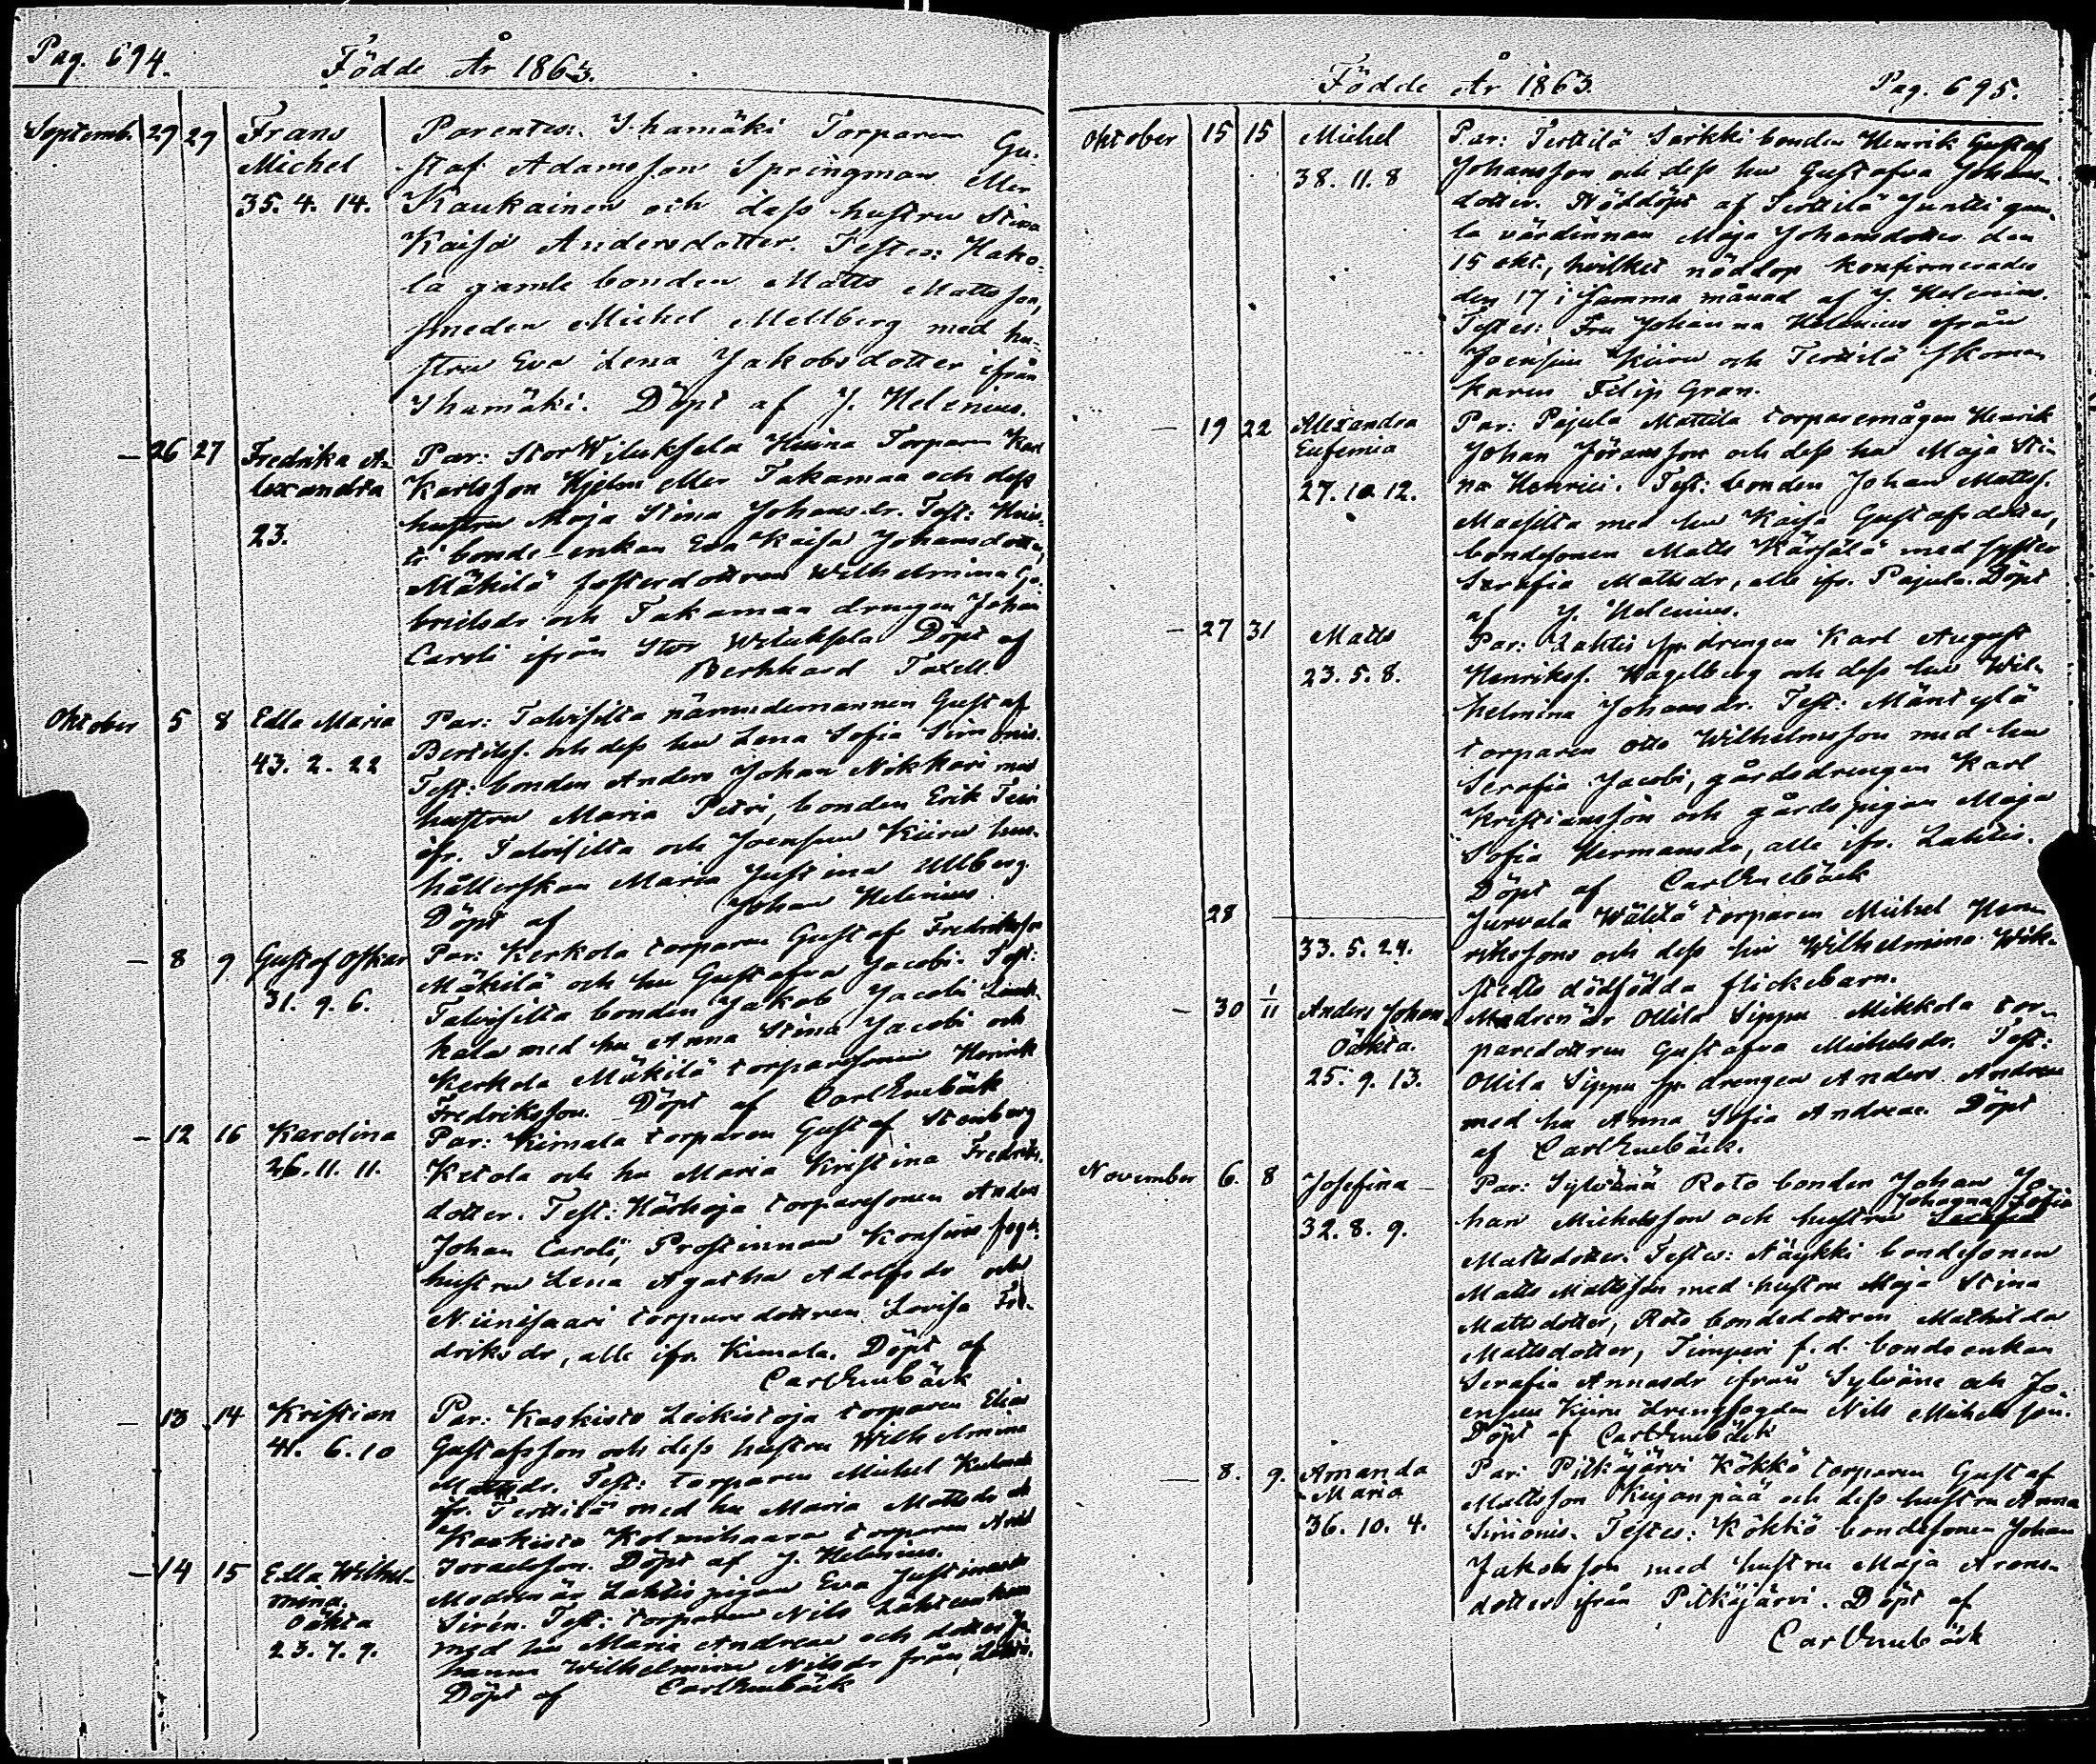 Pag. 694.
Födde År 1863.
Septemb. 29 29 Frans Parentes: Ihamäki Torparen Gu-
Michel staf Adamsson Springman eller
35. 4. 14. Kaukainen och dess hustru Stina
Kaisa Andersdotter. Testes: Hako-
la gamle bonden Matts Mattsson,
smeden Michel Mellberg med hu-
stru Eva Lena Jakobsdotter ifrån
Ihamäki. Döpt af J. Helenius.
— 26 27 Fredrika A- Par: StorWiluksela Torparen Karl
lexandra Karlsson Hjelm eller Takamaa och dess
hustru Maja Stina Johansdr. Test:
23. bonde-enkan Eva Kaisa Johansdotter,
Mäkilä fosterdottren Wilhelmina Ga-
brielsdr och Takamaa drengen Johan
Caroli ifrån Stor Wiluksela Döpt af
Bernhard Taxell.
Oktober 5 8 Edla Maria Par: Talvisilta nämndemannen Gustaf
Bertilss. och dess hu Lena Sofia Simonis.
43. 2. 22 Test: bonden Anders Johan Nikkari med
hustru Maria Petri, bonden Erik
ifr. Talvisilta och Joensuu Kiiru hus-
hållerskan Maria Justina Ullberg
Döpt af Johan Helenius.
— 8 9 Gustaf Oskar Par: Kerkola torparen Gustaf Fredriksson
31. 9. 6. Mäkilä och hu Gustafva Jacobi. Test:
Talvisilta bonden Jakob Jacobi
kala med hu Anna Stina Jacobi och
Kerkola Mäkilä torparesonen Henrik
Fredriksson. Döpt af Carl Enebäck
— 12 16 Karolina Par: Kimala torparen Gustaf Stenberg
26. 11. 11. Ketola och hu Maria Kristina Fredriks-
dotter. Test: Härkoja torparesonen Anders
Johan Caroli, Prostinnan
hustru Lena Agatha Adolfsdr och
Niinisaari torparedottren Lovisa Fre-
driksdr, alle ifr. Kimala. Döpt af
Carl Enebäck
— 13 14 Kristian Par: Kaskisto Leikistoja torparen Elias
41. 6. 10 Gustafsson och dess hustru Wilhelmina
Mattsdr. Test: torparen Michel
ifr. Terttilä med hu Maria Mattsdr och
Kaskisto Kolmihaara torparen
Israelsson. Döpt af J. Helenius.
— 14 15 Edla Wilhel- Modren är Lahtis pigan Eva Justina
mina. Sirén. Test: torparen Nils
Oäkta med hu Maria Andreae och dotter Jo-
23. 7. 9. hanna Wilhelmina Nilsdr från Lahtis.
Döpt af Carl Enebäck
Födde År 1863. Pag. 695.
Oktober 15 15 Michel Par: Terttilä Sarkki bonden Henrik Gustaf
38. 11. 8 Johansson och dess hu Gustafva Johans-
dotter. Nöddöpt af Terttilä Juntti gam-
la värdinnan Maja Johansdotter den
15 okt., hvilket nöddop konfirmerades
den 17 i samma månad af J. Helenius.
Testes: Fru Johanna Helenius ifrån
Joensuu Kiiru och Terttilä skoma-
karen Filip Gran.
— 19 22 Alexandra Par: Pajula Mattila torparemågen Henrik
Eufemia Johan Jöransson och dess hu Maja Sti-
27. 10. 12. na Henrici. Test: bonden Johan Mattss.
Maesilta med hu Kaisa Gustafsdotter,
bondesonen Matts Kärsälä med syster
Serafia Mattsdr, alle ifr. Pajula. Döpt
af J. Helenius.
— 27 31 Matts Par: Lahtis sp. drengen Karl August
23. 5. 8. Henrikss. Hagelberg och dess hu Wil-
helmina Johansdr. Test: Mäntylä
torparen Otto Wilhelmsson med hu
Serafia Jacobi, gårdsdrengen Karl
Kristiansson och gårdspigan Maja
Sofia Hermansdr, alle ifr. Lahtis.
Döpt af Carl Enebäck
28 — Jurvala Wälilä torparen Michel Hen-
33. 5. 24. rikssons och dess hu Wilhelmina Wik-
stedts dödfödda flickebarn.
— 30 1/11 Anders Johan Modren är Ollila Sippu Mikkola tor-
Oäkta. paredottren Gustafva Michelsdr. Test:
25. 9. 13. Ollila Sippu sp. drengen Anders Andreae
med hu Anna Sofia Andreae. Döpt
af Carl Enebäck.
November 6. 8 Josefina — Par: Sylvänä Roto bonden Johan Jo-
Johanna Sofia
32. 8. 9. han Michelsson och hustru Serafia
Mattsdotter. Testes: Näykki bondesonen
Matts Mattsson med hustru Maja Stina
Mattsdotter, Roto bondedottren Mathilda
Mattsdotter, Timperi f. d. bonde enkan
Serafia Annasdr ifrån Sylväne och Jo-
ensuu Kiiru drengfogden Nils Michelsson.
Döpt af Carl Enebäck
— 8. 9. Amanda Par: Pitkäjärvi Kökkö torparen Gustaf
Maria Mattsson Kujanpää och dess hustru Anna
36. 10. 4. Simonis. Testes: Kökkö bondesonen Johan
Jakobsson med hustru Maja Arons-
dotter ifrån Pitkäjärvi. Döpt af
Carl Enebäck